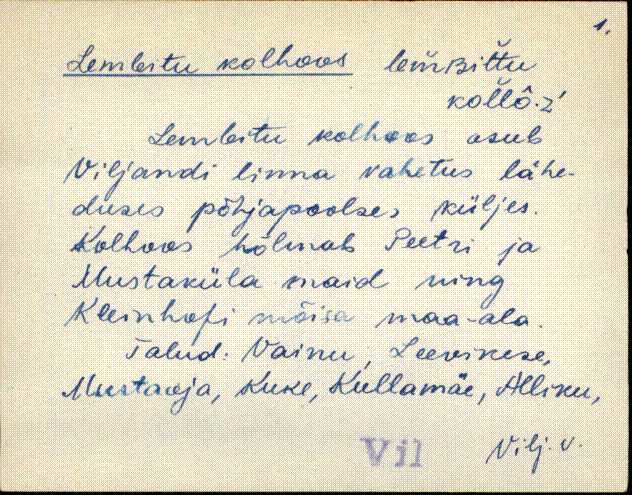 1.
Lembitu kolhoos lem̆ʙit̆tu
kol̆l̆ô·ź
Lembitu kolhoos asub
Viljandi linna vahetus lähe-
duses põhjapoolses küljes.
Kolhoos hõlmab Peetri ja
Mustaküla maid ning
Kleinhofi mõisa maa-ala.
Talud: Vainu, Leevikese,
Mustaoja, Kuke, Kullamäe, Alliku,
Vil Vilj. v.